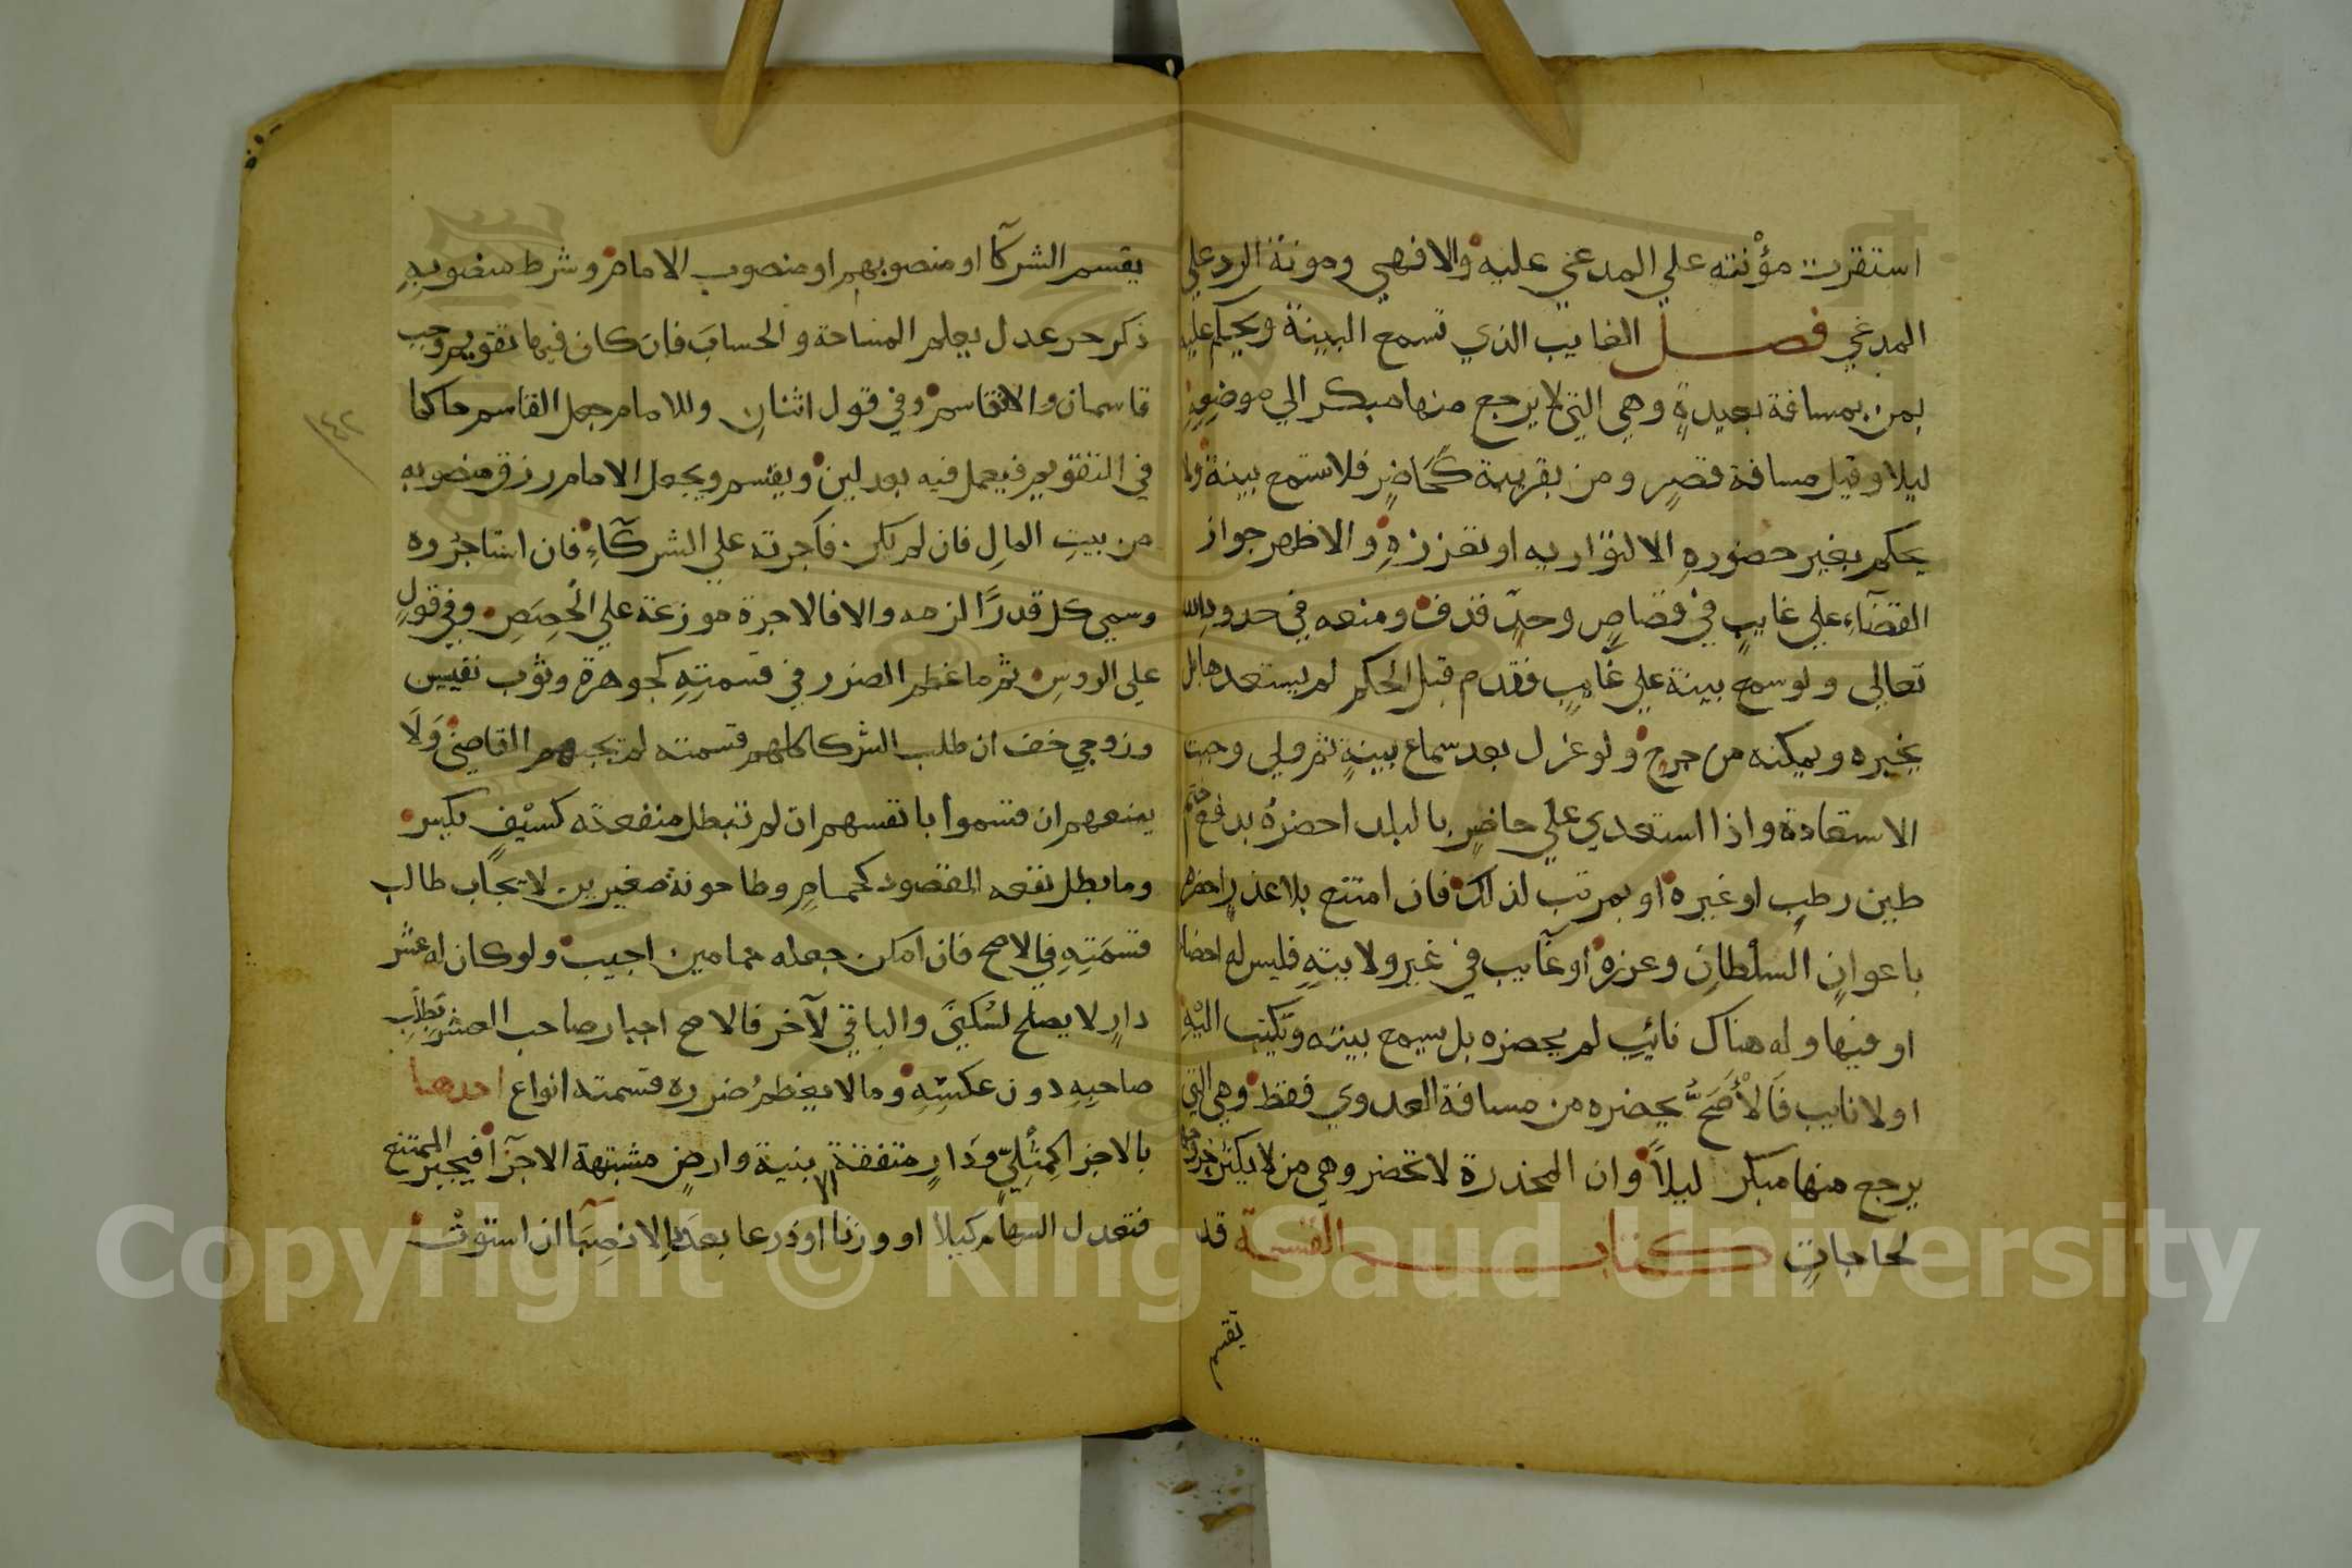 استقرت مؤنته علي المدعي عليه والا فهي ومونة الرد علي
المدعي فصل الغايب الذي تسمع البينة ويحكم عليه
بمن بمسافة بعيدة وهي التي لا يرجع منها مبكر الي موضعه
ليلا وقيل مسافة قصر ومن بقريبة كحاضر فلا تسمع بينة ولا
يحكم بغير حضوره الا لتواريه او تعززه والاظهر جواز
القضاء علي غايب في قصاص وحد قذف ومنعه في حدود الله
تعالي ولو سمع بينة علي غايب فقدم قبل الحكم لم يستعدها بل
يخبره ويمكنه من جرح ولو عزل بعد سماع بينة ثم ولي وجبت
الاستعادة واذا استعدي علي حاضر بالبلد احضره بدفع ختم
طين رطب او غيره او بمرتب لذلك فان امتنع بلا عذر احضره
باعوان السلطان وعزره او غايب في غير ولايته فليس له احضا
او فيها وله هناك نائب لم يحضره بل يسمع بينته ويكتب اليه
او لا نايب فالاصح يحضره من مسافة العدوي فقط وهي التي
يرجع منها مبكر ليلا وان المخدرة لا تحضر وهي من لا يكثر خروجها
لحاجات كتاب القسمة قد
يقسم
يقسم الشركآ او منصوبهم او منصوب الامام وشرط منصوبه
ذكر حر عدل يعلم المساحة والحساب فان كان فيها تقويم وجب
قاسمان والا فقاسم وفي قول اثنان وللامام جعل القاسم حاكما
في التقويم فيعمل فيه بعدلين ويقسم ويجعل الامام رزق منصوبه
من بيت المال فان لم يكن فاجرته علي الشركآء فان استاجروه
وسمي كل قدرا لزمه والا فالاجرة موزعة علي الحصص وفي قول
علي الروس ثم ما عظم الضرر في قسمته كجوهرة وثوب نفيس
وزوجي خف ان طلب الشركا كلهم قسمته لم يجبهم القاضي ولا
يمنعهم ان قسموا بانفسهم ان لم تبطل منفعته كسيف يكسر
وما يبطل نفعه المقصود كحمام وطاحونة صغيرين لا يجاب طالب
قسمته في الاصح فان امكن جعله حمامين اجيب ولو كان له عشر
دار لا يصلح لسكني والباقي لآخر فالاصح اجبار صاحب العشر بطلب
صاحبه دون عكسه وما لا يعظم ضرره قسمته انواع احدها
بالاجزا كمثلي ودار متفقة الابنية وارض مشتبهة الاجزآ فيجبر الممتنع
فتعدل السهام كيلا او وزنا او ذرعا بعدد الانصبآ ان استوت
١٤٢
Copyright © King Saud University